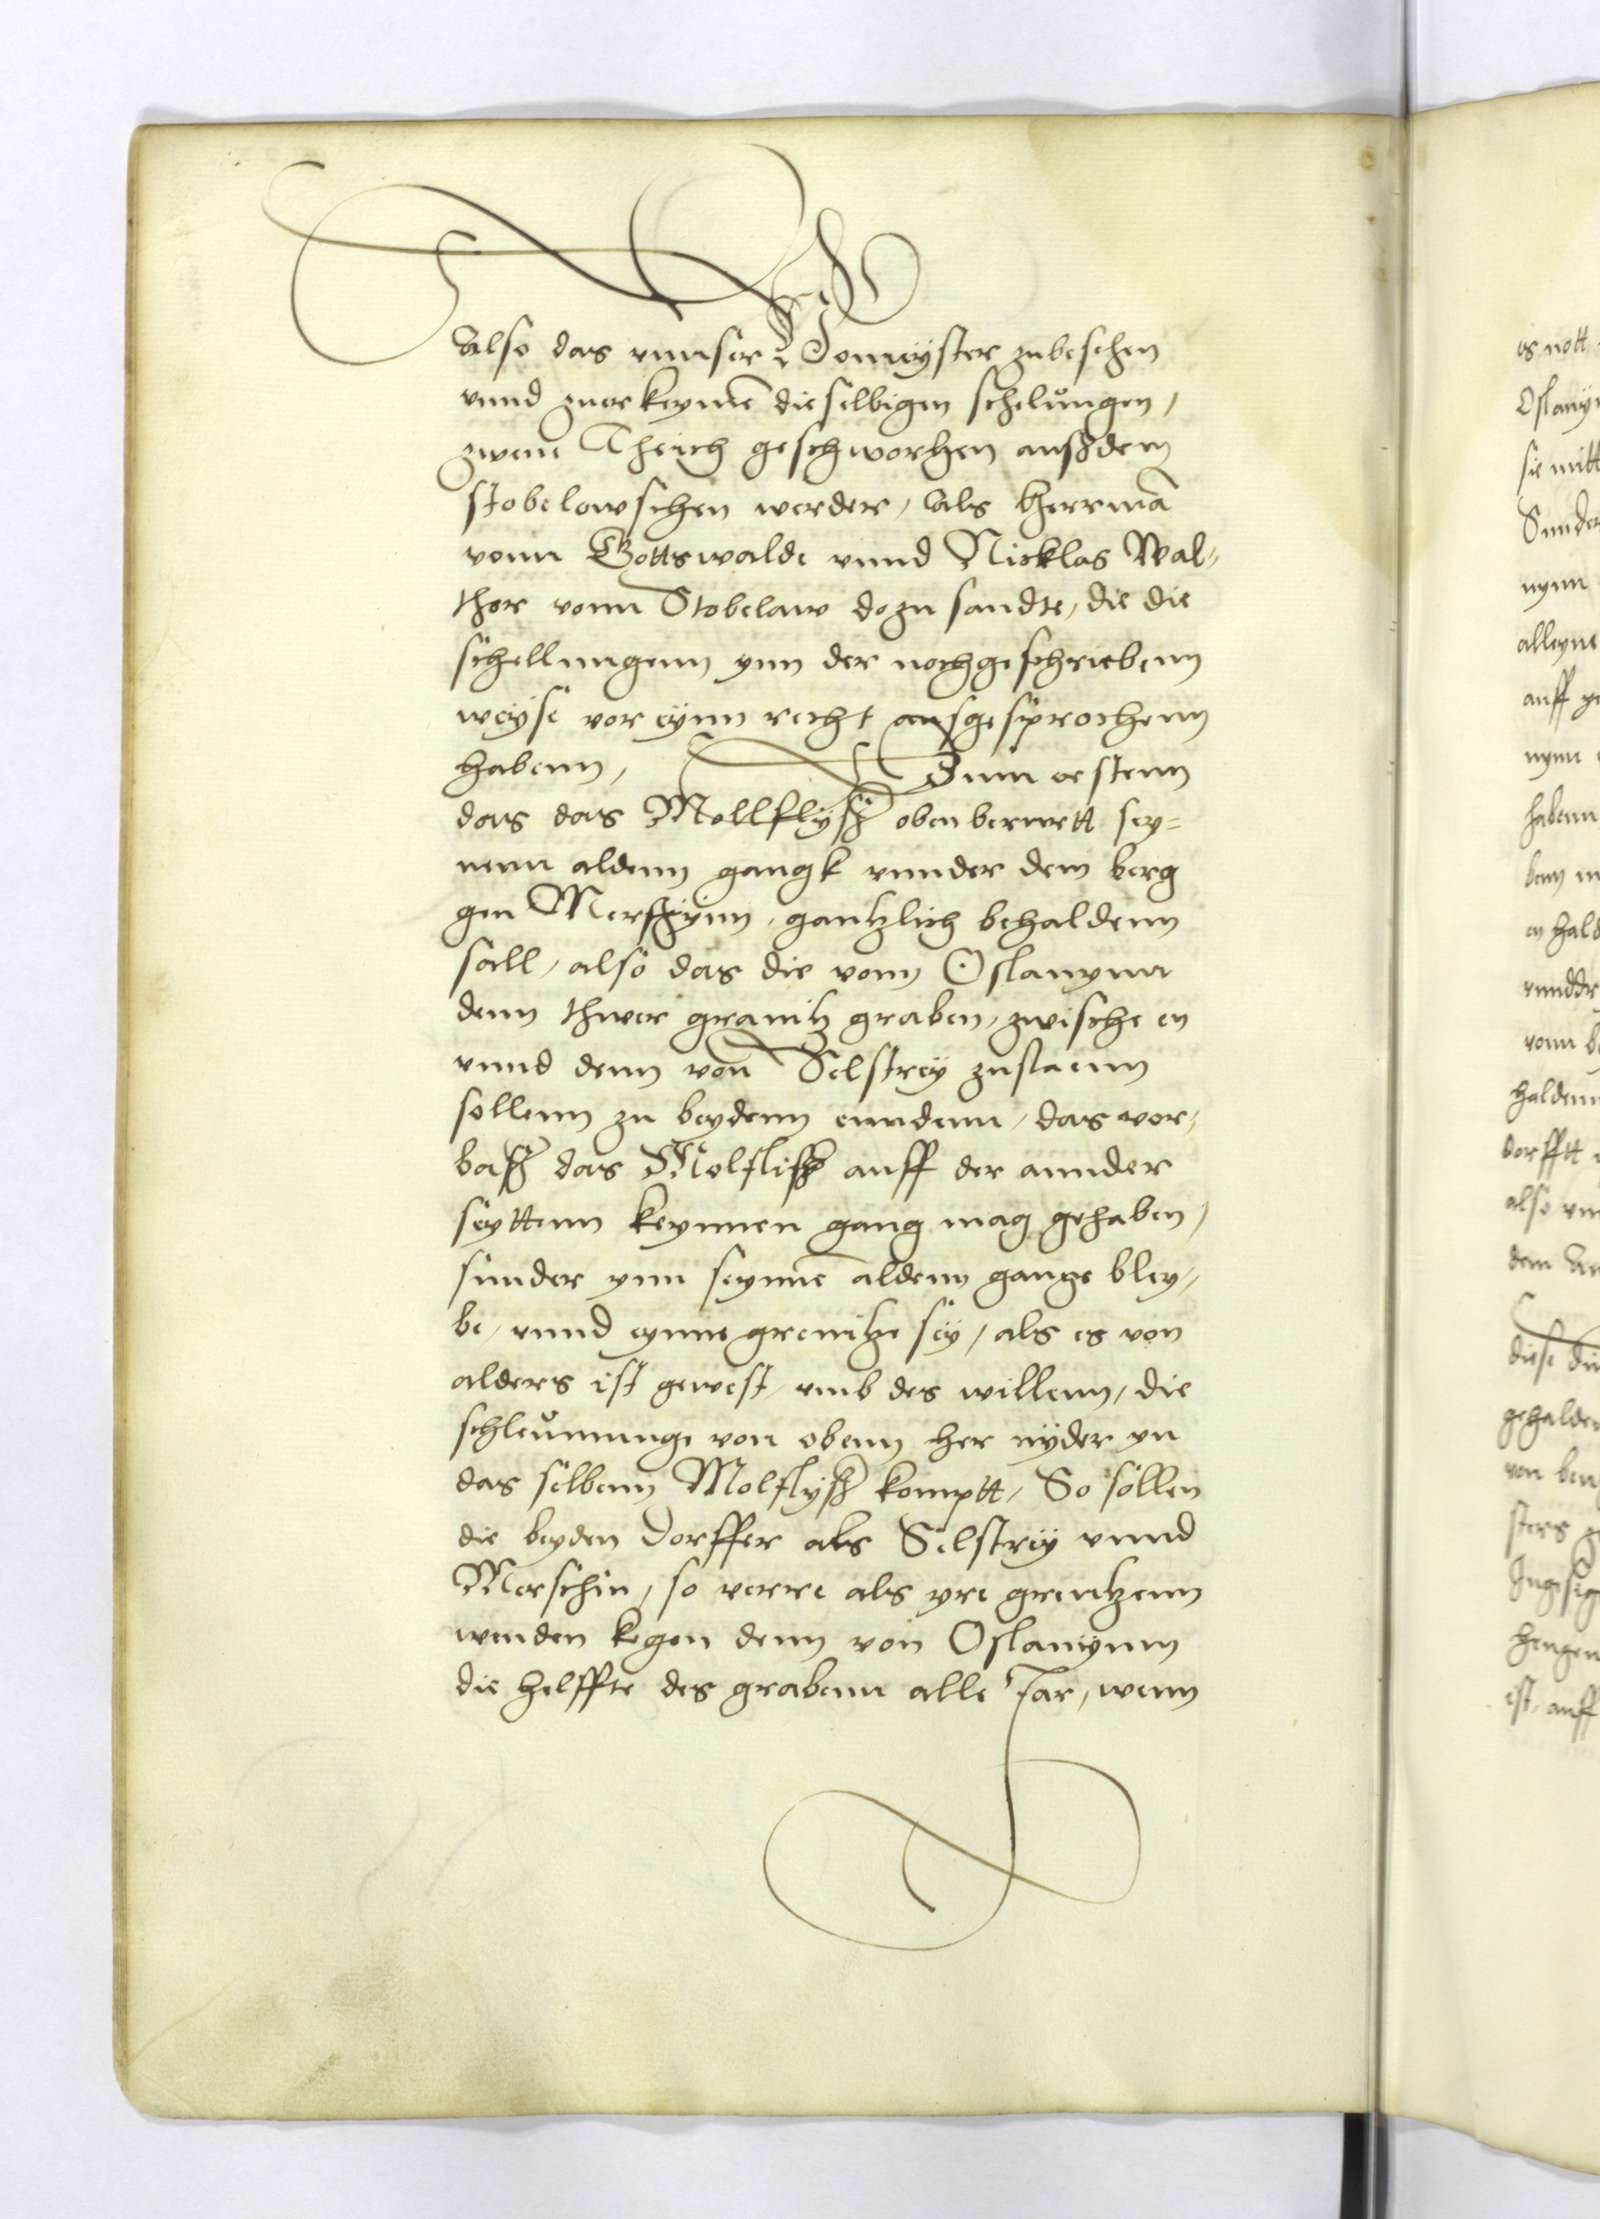 Also das unnser Homeyster zubesehen
unnd zuerkeynnē dieselbigen schelůngen,
zwene Theich geschworhen aussdem
stobelowschen werder, als herrmā
vonn Gottswalde unnd Nicklas Wal-
ther vonn Stobelaw dozu sandte, die die
schellungenn ynn der nochgeschriebenn
weyse vor eynn recht ausgesprochenn
habenn, Zum erstenn
das das Mollflyß obenberurtt sey=
nenn aldenn gangk unnder dem berg
gen Merschynn, gantzlich behaldenn
sall, also das die vonn Oslanynn
denn thwer granitz graben, zwische en
unnd denn von Selstrey zuslaenn
sollenn zu beydenn enndenn, das vor-
baß das Molfliß auff der annder
seyttenn keynnen gang mag gehaben,
sunder ynn seynnē aldenn gange bley-
be, unnd eynne grenitze sey, als es von
alders ist gewest, umb des willenn, die
schleůnunge von obenn her nyder yn
das selbenn Molflyß komptt, So sollen
die beyden Dorffer als Selstrey unnd
Merschin, so verre als yre grentzenn
wenden kegen denn von Oslanynn
die helffte des grabenn alle Jar, wenn
es nott
Oslany
sie mitt
Sunder
nynn
alleyne
auff
nynn
habenn
unnd
vonn
haldenn
dorfftt
also
dem
diese
gehalden
von
sters
Ingesig
hengen
ist, auff